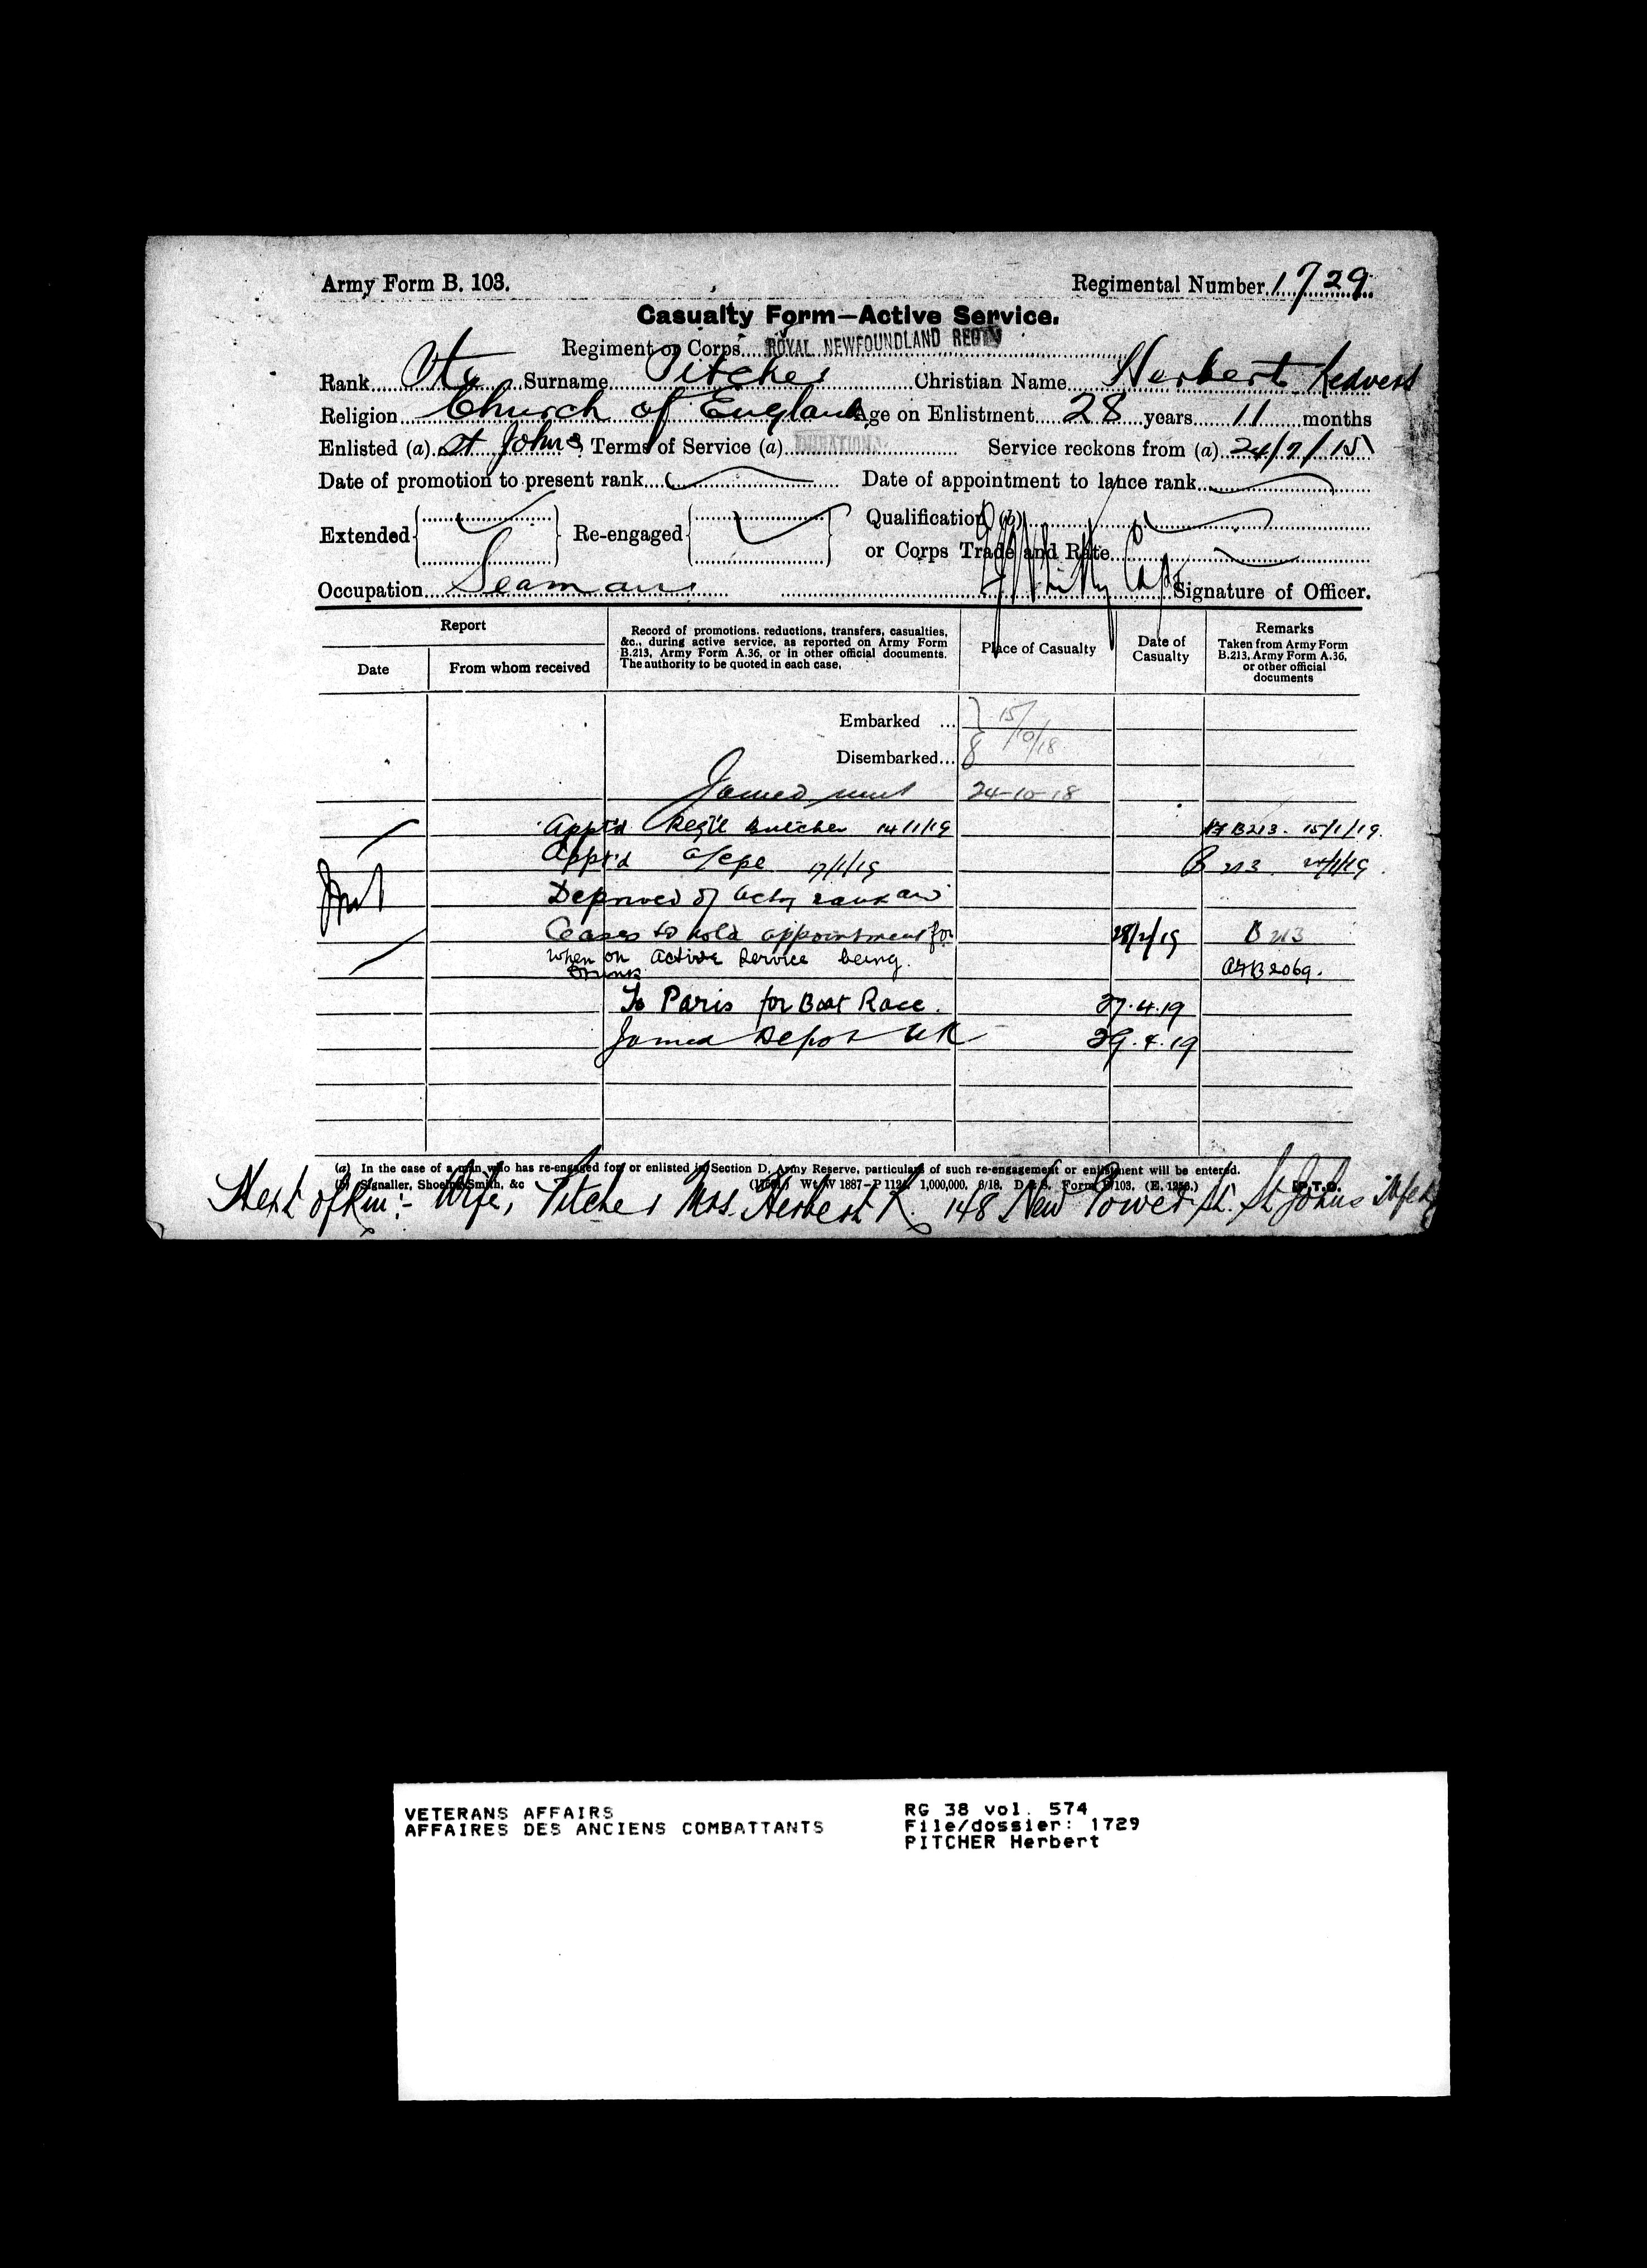 Army Form B. 103. Regimental Number 1729
Casualty Form—Active Service.
Regiment or Corps ROYAL NEWFOUNDLAND REGT
Rank Pte Surname Pitcher Christian Name Herbert Redvers
Religion Church of England Age on Enlistment 28 years 11 months
Enlisted (a) St John's Terms of Service (a) DURATION Service reckons from (a) 24/7/15
Date of promotion to present rank Date of appointment to lance rank
Extended Re-engaged Qualification (b)
or Corps Trade and Rate
Occupation Seaman Signature of Officer.
Report
Date From whom received
Record of promotions, reductions, transfers, casualties, &c., during active service, as reported on Army Form B.213, Army Form A.36, or in other official documents. The authority to be quoted in each case.
Place of Casualty
Date of Casualty
Remarks Taken from Army Form B.213, Army Form A.36, or other official documents
Embarked ... 15/10/18
Disembarked...
Joined unit 24-10-18
Appt'd Reg'l Butcher 14/1/19 AF B213. 15/1/19.
Appt'd a/cpl 17/1/19 B 213
Deprived of actg rank and
Ceases to hold appointment for 28/2/19 B 213
when on active service being AFB 2069.
Drunk
To Paris for Boat Race. 27.4.19
Joined Depot UK 29.4.19
(a) In the case of a man who has re-engaged for, or enlisted in Section D, Army Reserve, particulars of such re-engagement or enlistment will be entered.
(b) Signaller, Shoeing Smith, &c Wt. W 1887—P 1,000,000. 6/18. D & S. Form B/103. P.T.O.
Next of Kin:- Wife, Pitcher Mrs. Herbert R. 148 New Gower St. St Johns Nfld
VETERANS AFFAIRS RG 38 vol. 574
AFFAIRES DES ANCIENS COMBATTANTS File/dossier: 1729
PITCHER Herbert